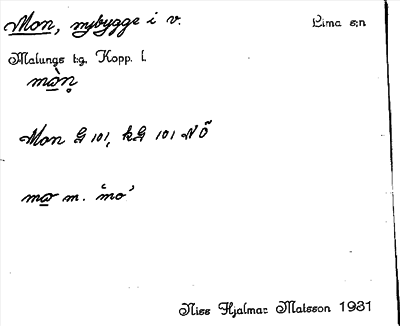 Mon, nybygge i v. Lima s:n
Malungs tg. Kopp. l.
mọ̀ṇ
Mon G 101, kG 101 NÖ
mo̲ m. 'mo'
Niss Hjalmar Matsson 1931